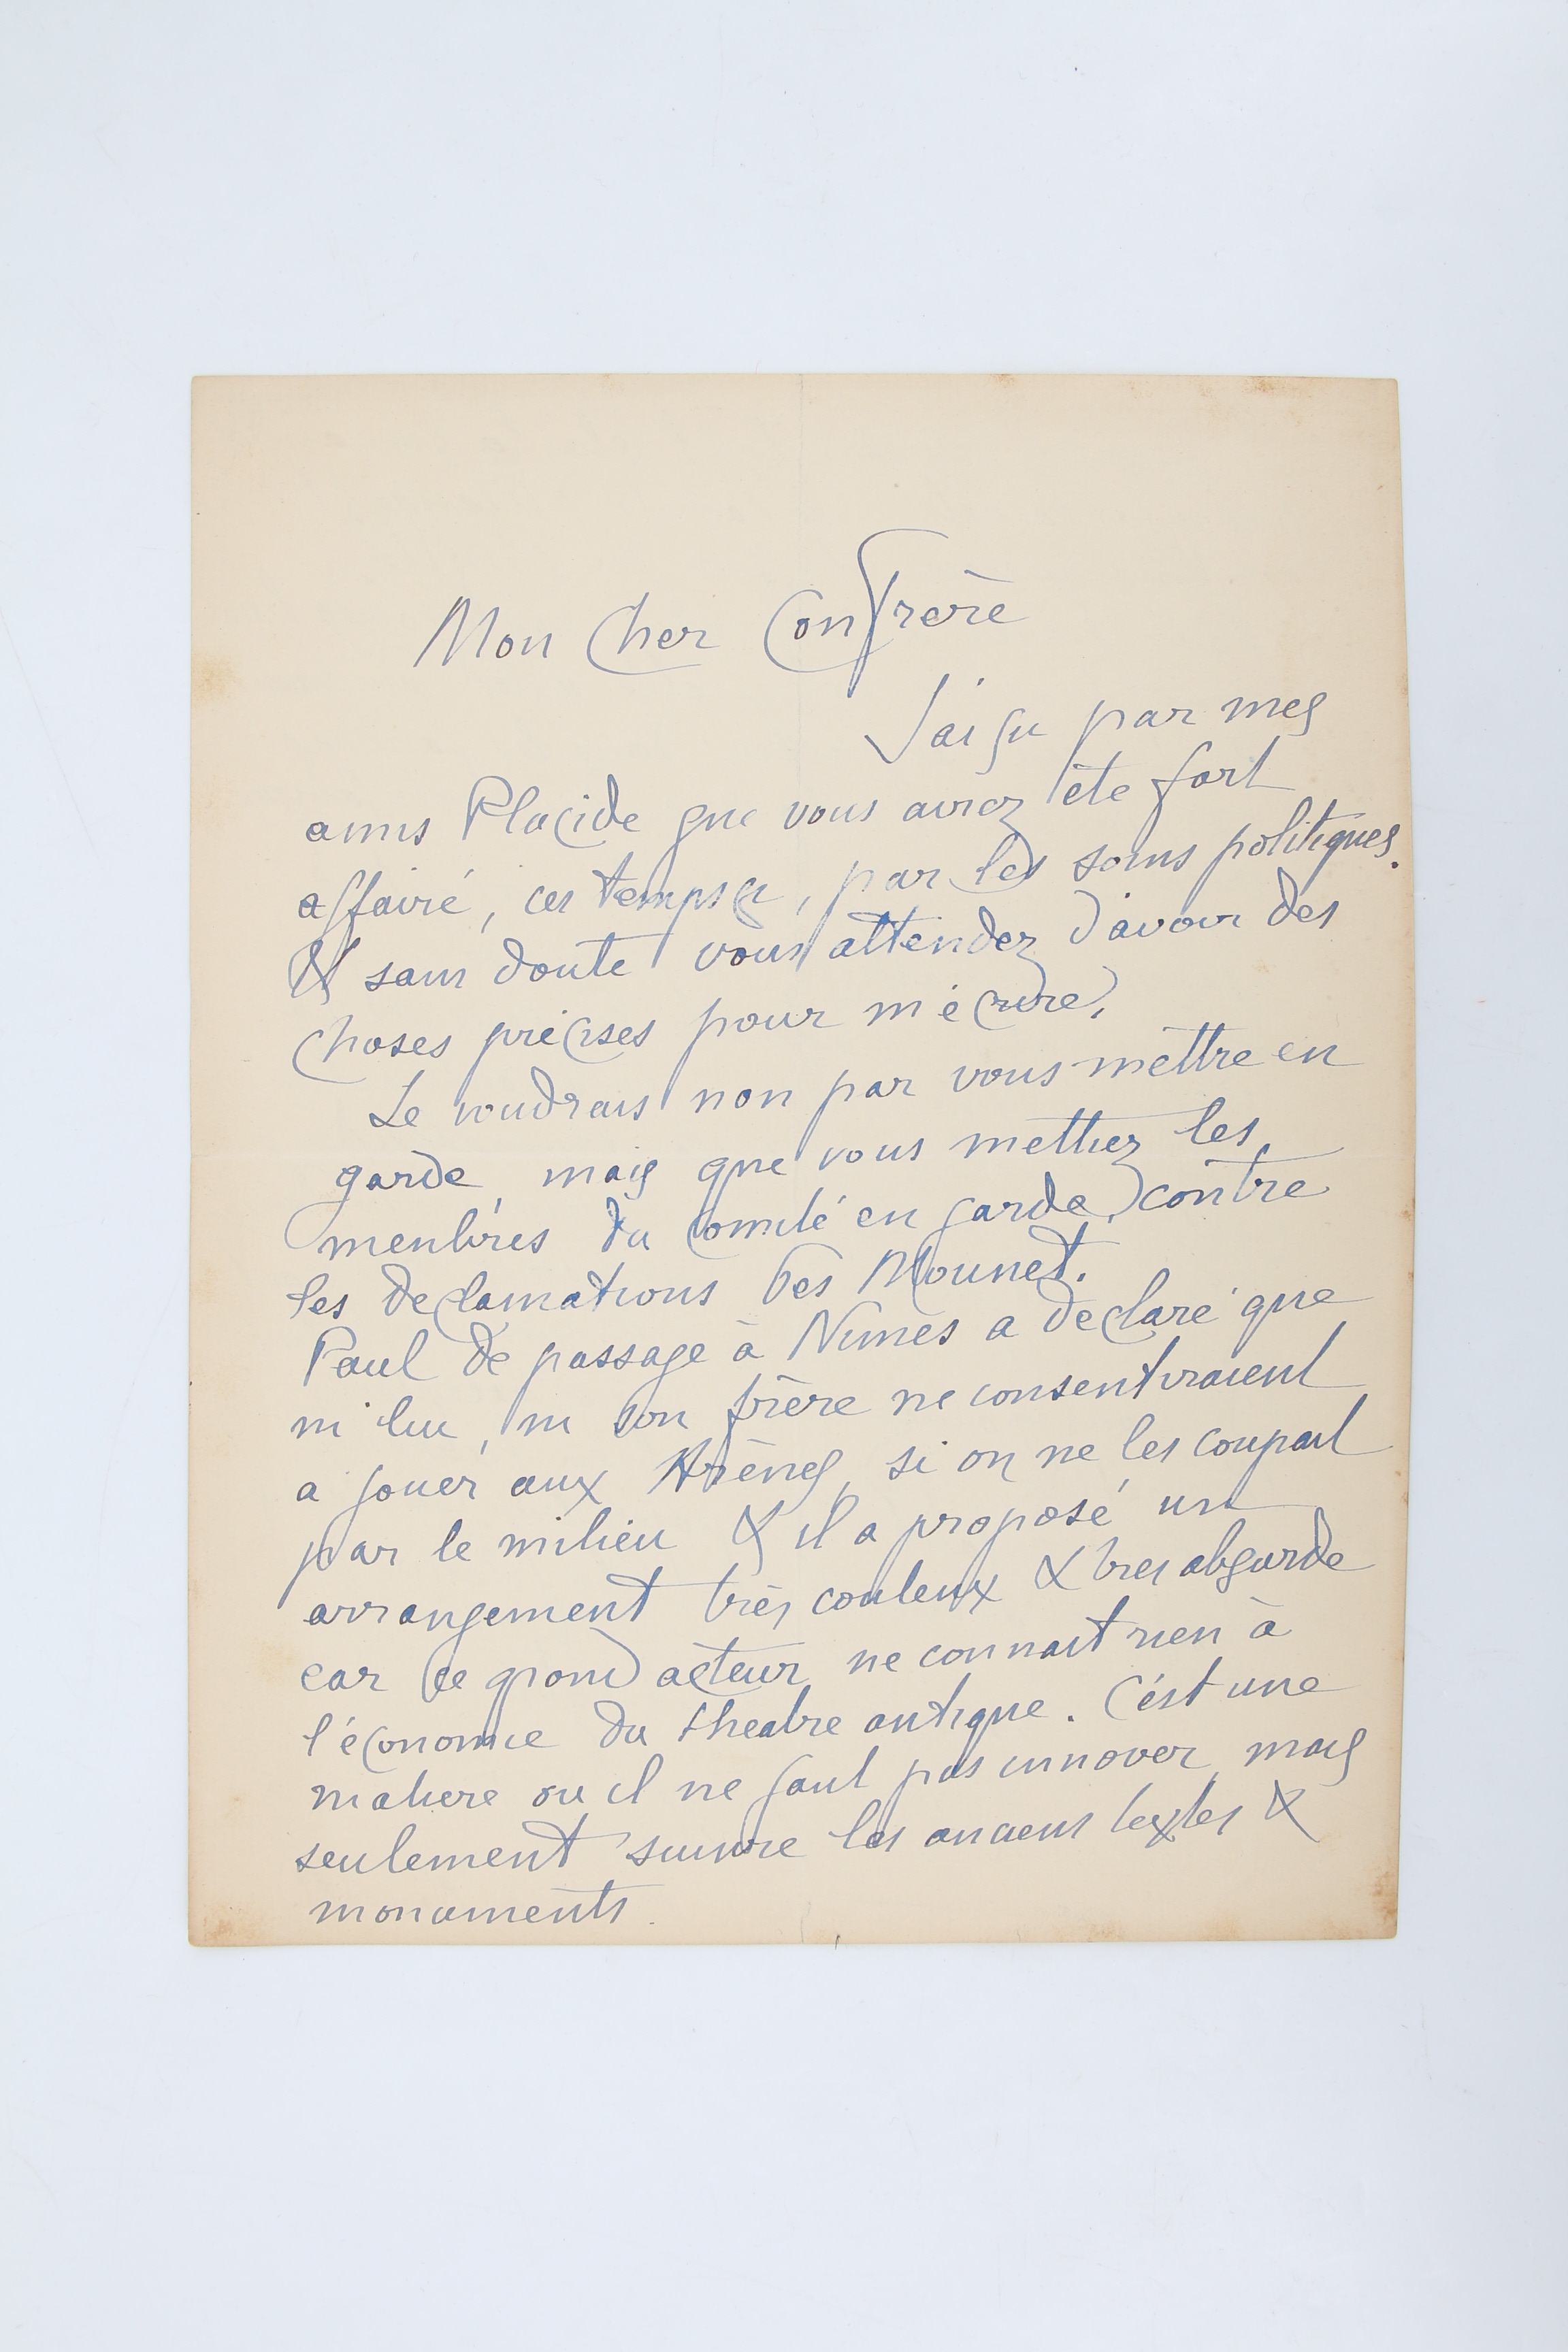 Mon Cher Confrère
J'ai su par mes
amis Placide que vous aviez été fort
affairé, ces temps ci, par les soins politiques.
& sans doute vous attendez d'avoir des
choses précises pour m'écrire.
Je voudrais non pas vous mettre en
garde, mais que vous mettiez les
membres du Comité en garde, contre
les declamations des Mounet.
Paul de passage à Nimes a declaré que
ni lui, ni son frère ne consentiraient
a jouer aux Arènes, si on ne les coupait
par le milieu & il a proposé un
arrangement très couteux & tres absurde
car ce grand acteur ne connait rien à
l'économie du theatre antique. C'est une
matiere ou il ne faut pas innover, mais
seulement suivre les anciens textes &
monuments.